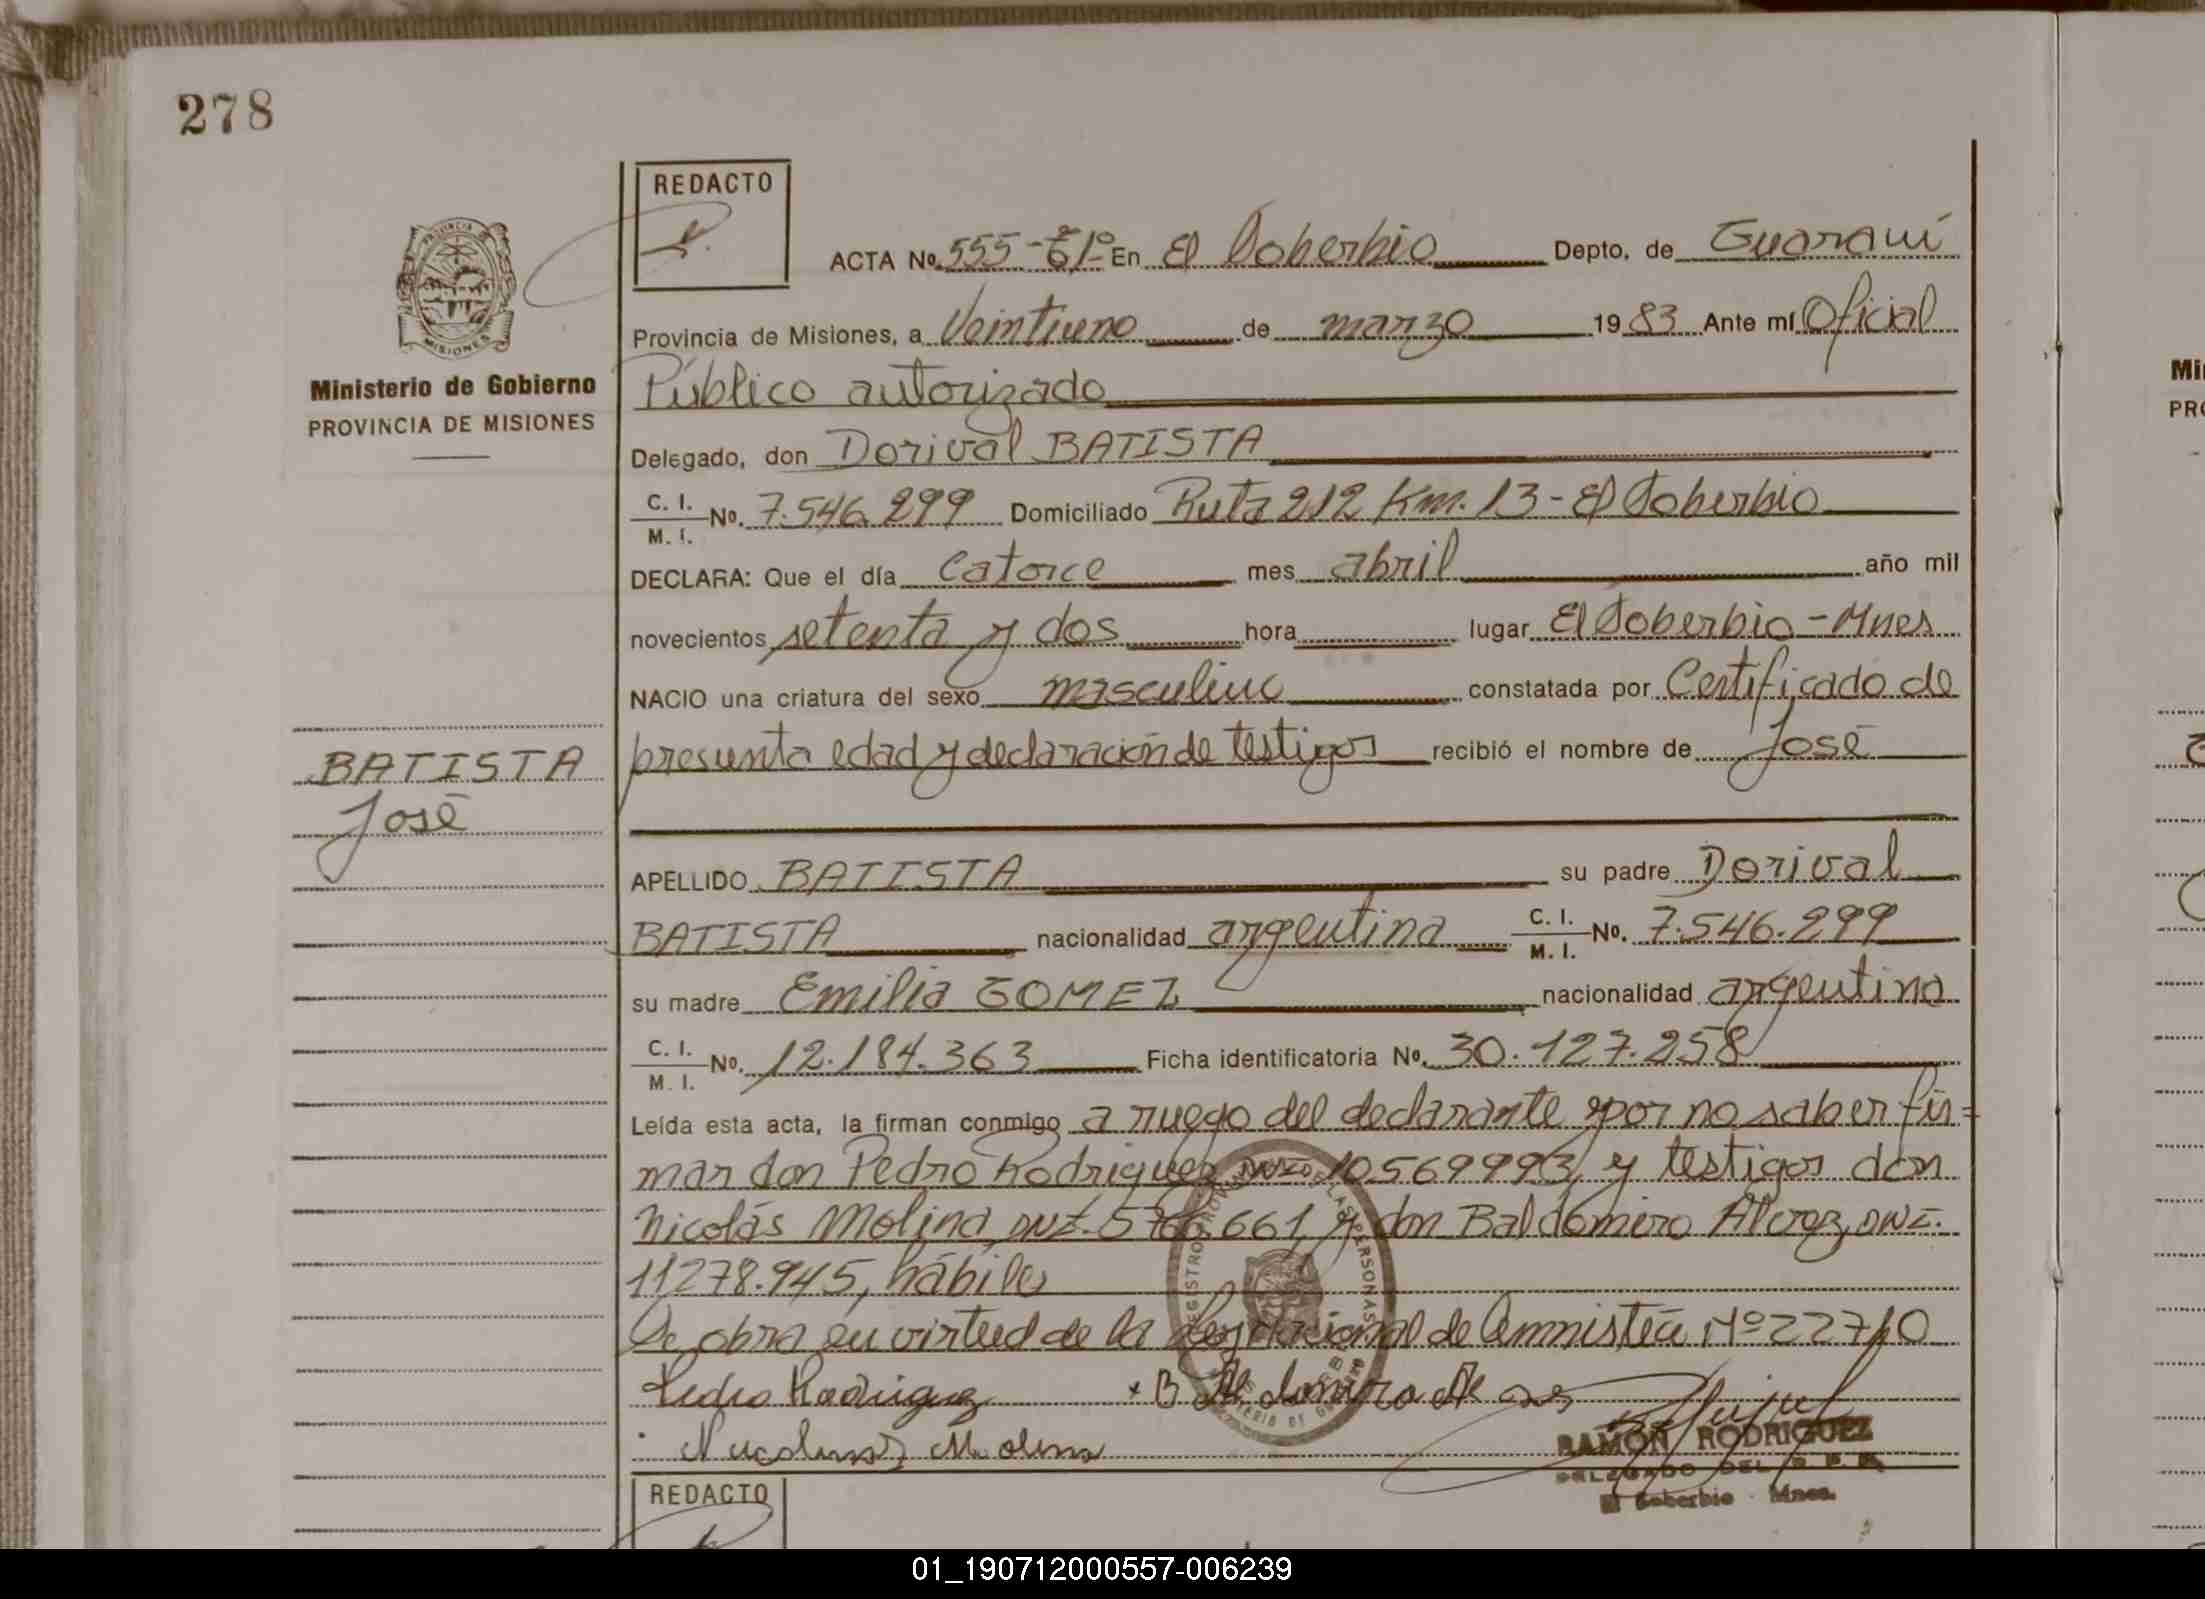 278
REDACTO
ACTA No. 555-T1º En El Soberbio Depto. de Guaraní
Provincia de Misiones, a Veintiuno de marzo 1983 Ante mí Oficial
Público autorizado
Delegado, don Dorival BATISTA
C. I. M. I. No. 7.546.299 Domiciliado Ruta 212 Km. 13 - El Soberbio
DECLARA: Que el día Catorce mes abril año mil
novecientos setenta y dos hora lugar El Soberbio - Mnes
NACIO una criatura del sexo masculino constatada por Certificado de
presunta edad y declaración de testigos recibió el nombre de José
APELLIDO BATISTA su padre Dorival
BATISTA nacionalidad argentina C. I. M. I. No. 7.546.299
su madre Emilia GOMEZ nacionalidad argentina
C. I. M. I. No. 12.184.363 Ficha identificatoria No. 30.127.258
Leída esta acta, la firman conmigo a ruego del declarante por no saber fir=
mar don Pedro Rodriguez DNI 10569993, y testigos don
Nicolás Molina DNI. 661, y don Baldomero Alvez, DNI.
11278.945, hábiles
Se obra en virtud de la Ley Nacional de Amnistía Nº 22710
Pedro Rodriguez
Molina
RAMON RODRIGUEZ
DELEGADO DEL R. P. P.
El Soberbio - Mnes.
REDACTO
PROVINCIA DE
MISIONES
Ministerio de Gobierno
PROVINCIA DE MISIONES
BATISTA
José
Mi
PRO
01_190712000557-006239